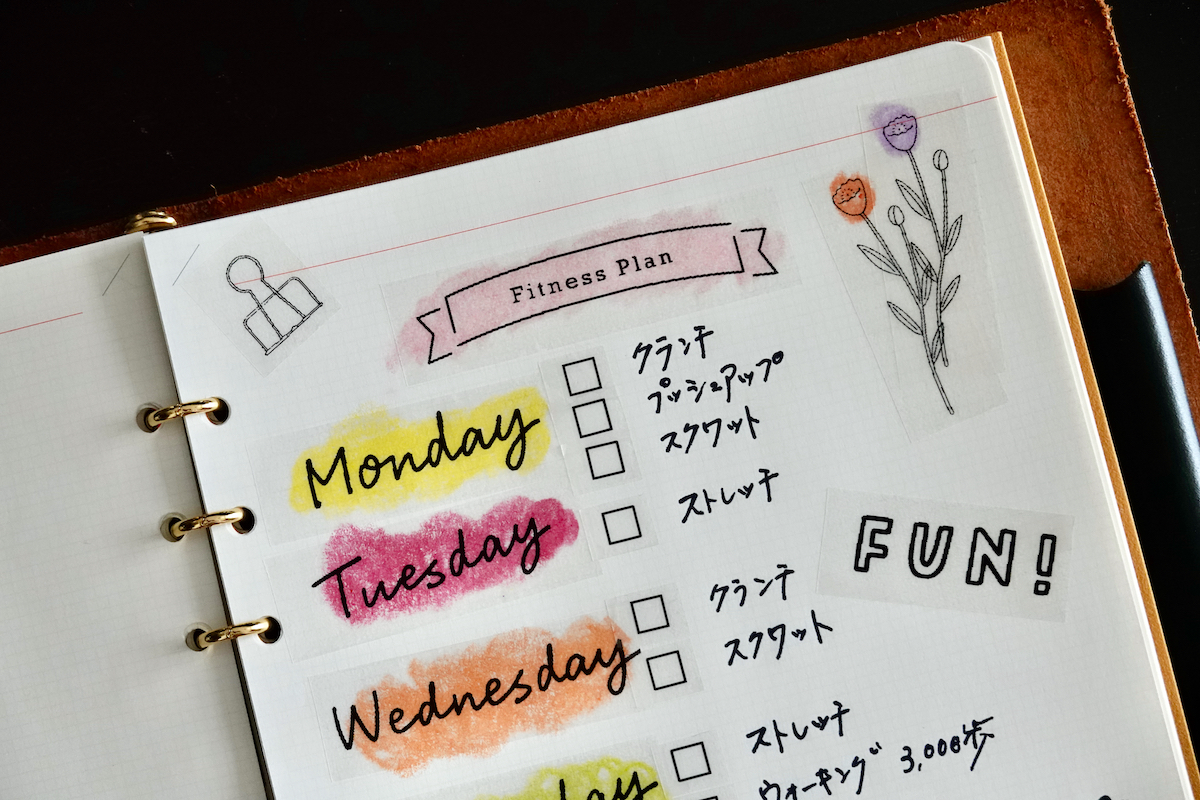 Fitness Plan
Monday
クランチ
プッシュアップ
スクワット
Tuesday
ストレッチ
FUN!
Wednesday
クランチ
スクワット
ストレッチ
ウォーキング 3,000歩